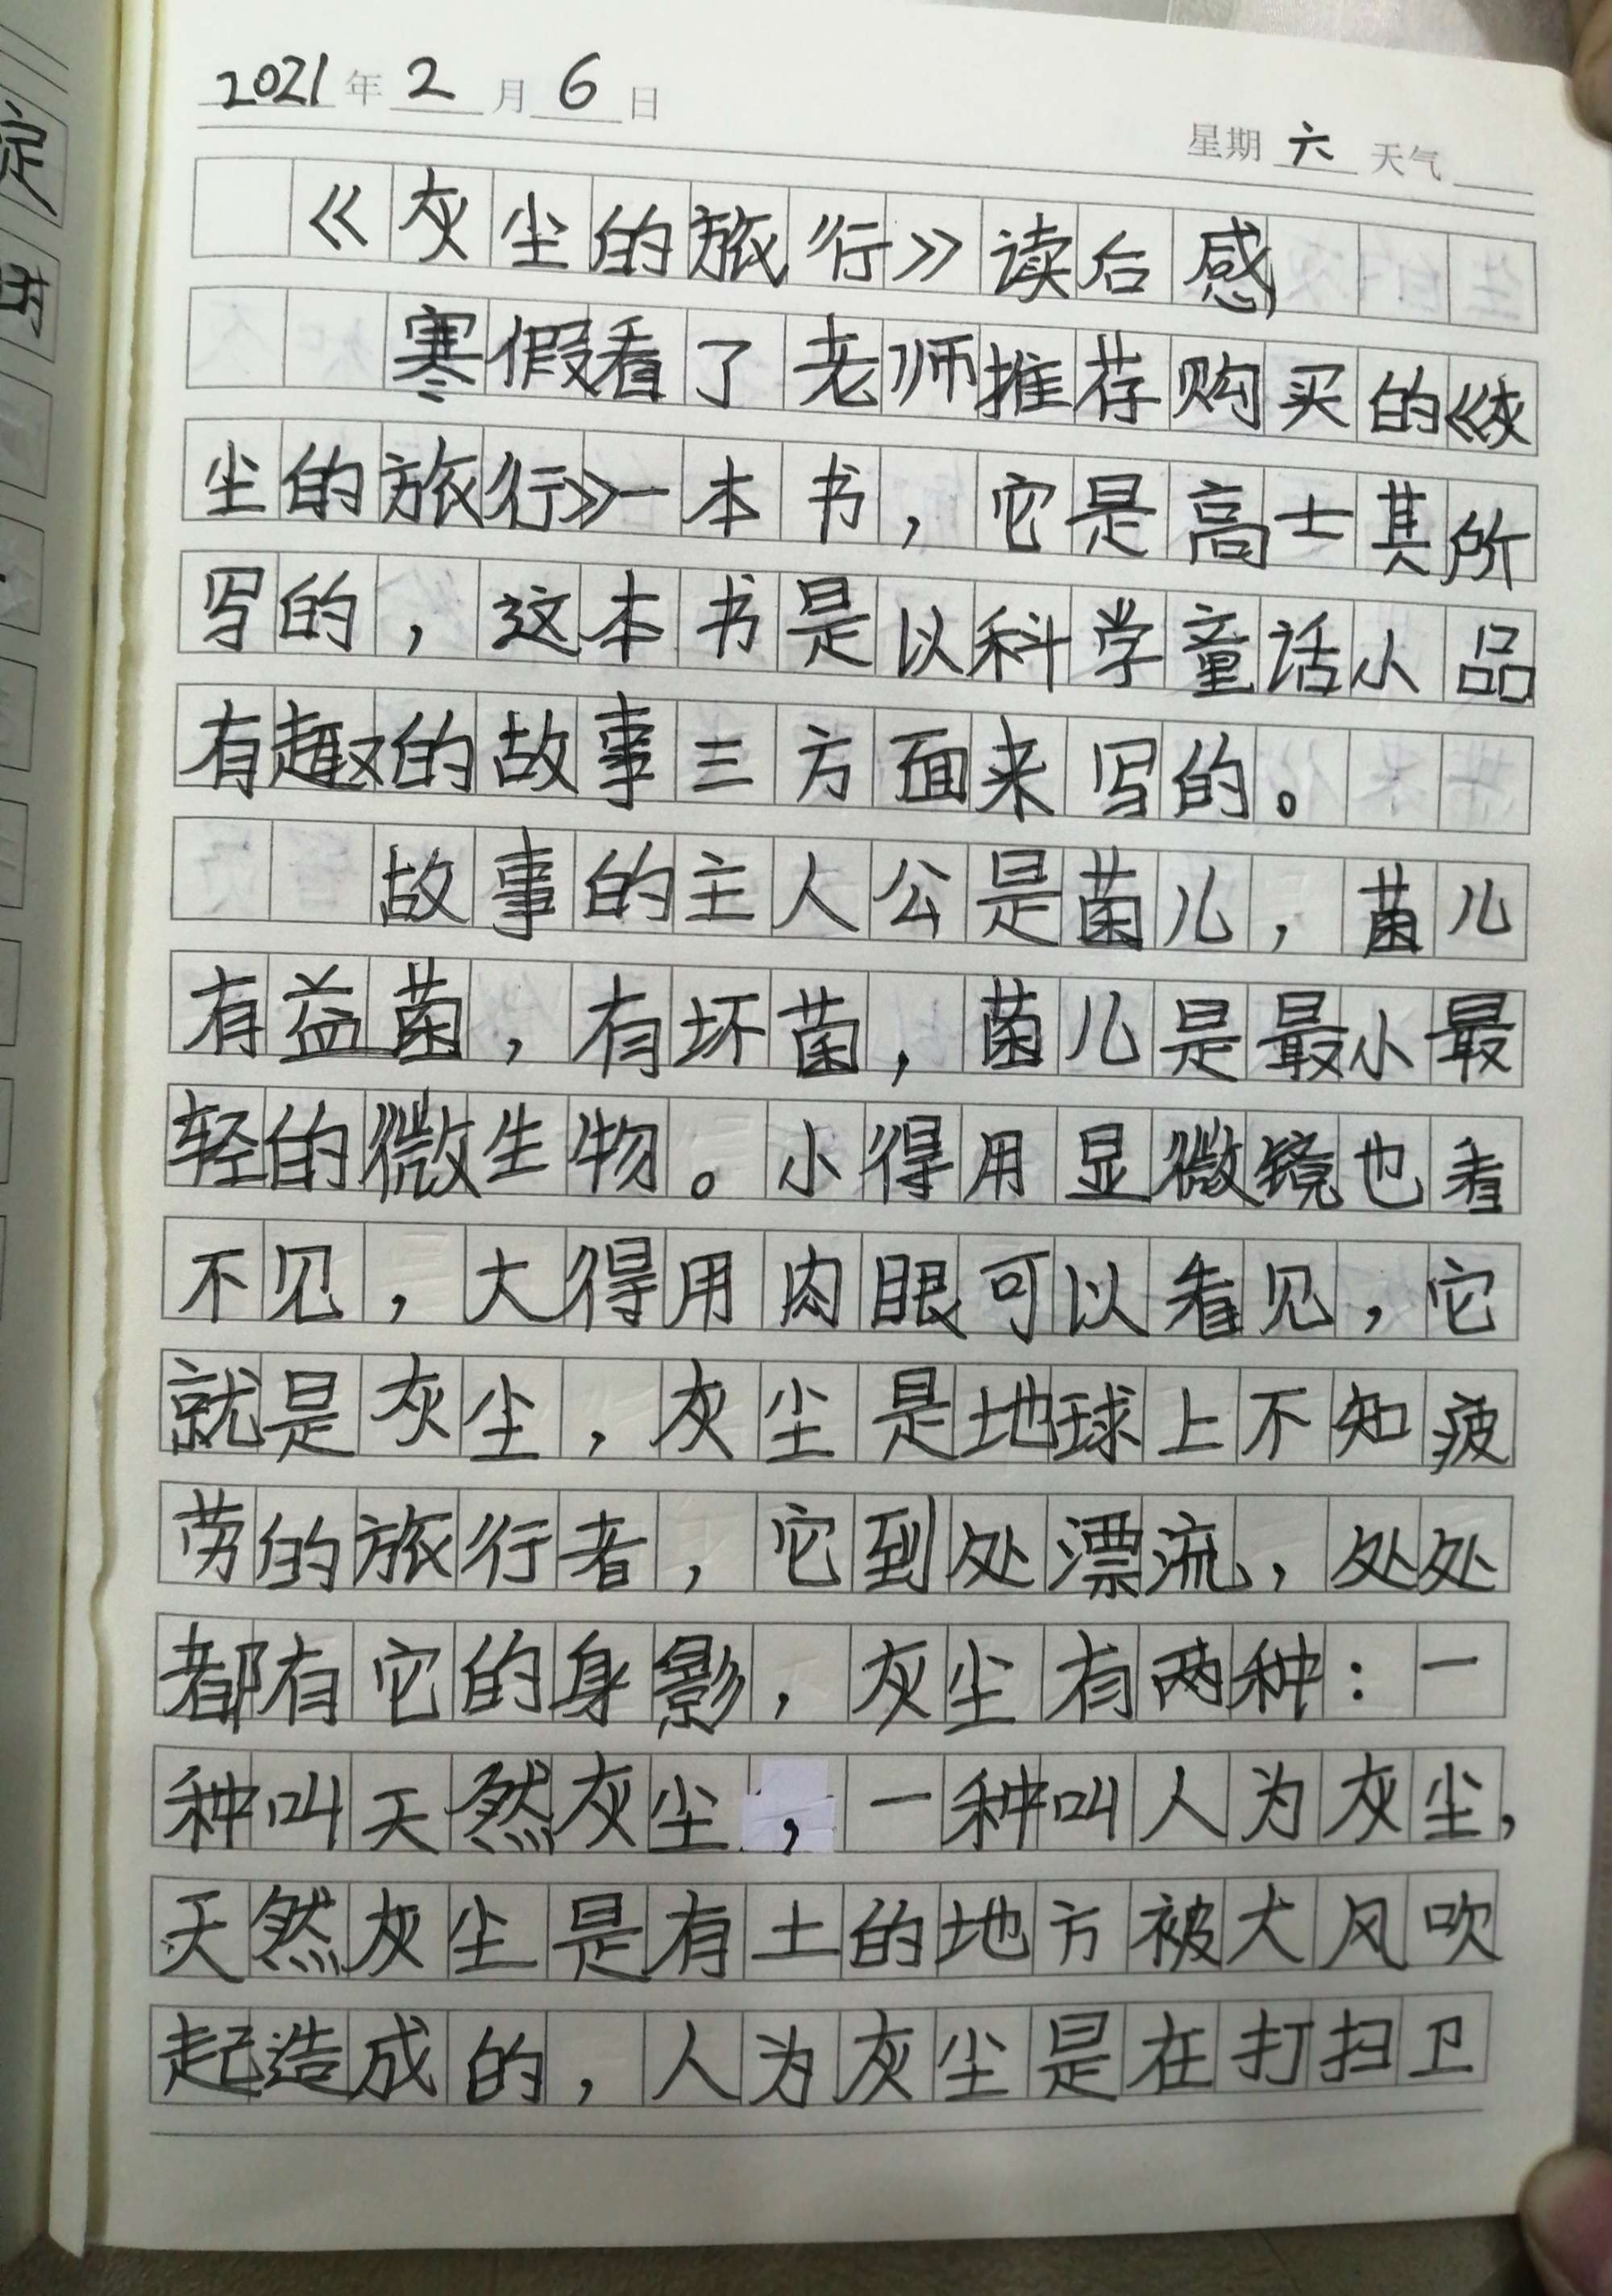 2021年2月6日
星期六天气
《灰尘的旅行》读后感
寒假看了老师推荐购买的《灰
尘的旅行》一本书，它是高士其所
写的，这本书是以科学童话小品
有趣的故事三方面来写的。
故事的主人公是菌儿，菌儿
有益菌，有坏菌，菌儿是最小最
轻的微生物。小得用显微镜也看
不见，大得用肉眼可以看见，它
就是灰尘，灰尘是地球上不知疲
劳的旅行者，它到处漂流，处处
都有它的身影，灰尘有两种：一
种叫天然灰尘，一种叫人为灰尘，
天然灰尘是有土的地方被大风吹
起造成的，人为灰尘是在打扫卫